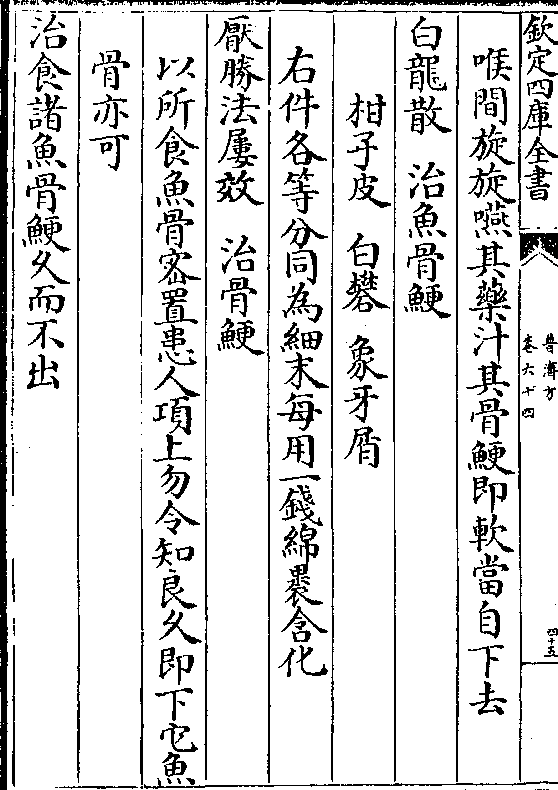 欽定四庫全書
普濟方
卷六十四
四十五
喉間旋旋嚥其藥汁其骨鯁即軟當自下去
白龍散　治魚骨鯁
柑子皮　白礬　象牙屑
右件各等分同為細末每用一錢綿褁含化
厭勝法屢效　治骨鯁
以所食魚骨宻置患人項上勿令知良乆即下它魚
骨亦可
治食諸魚骨鯁乆而不出